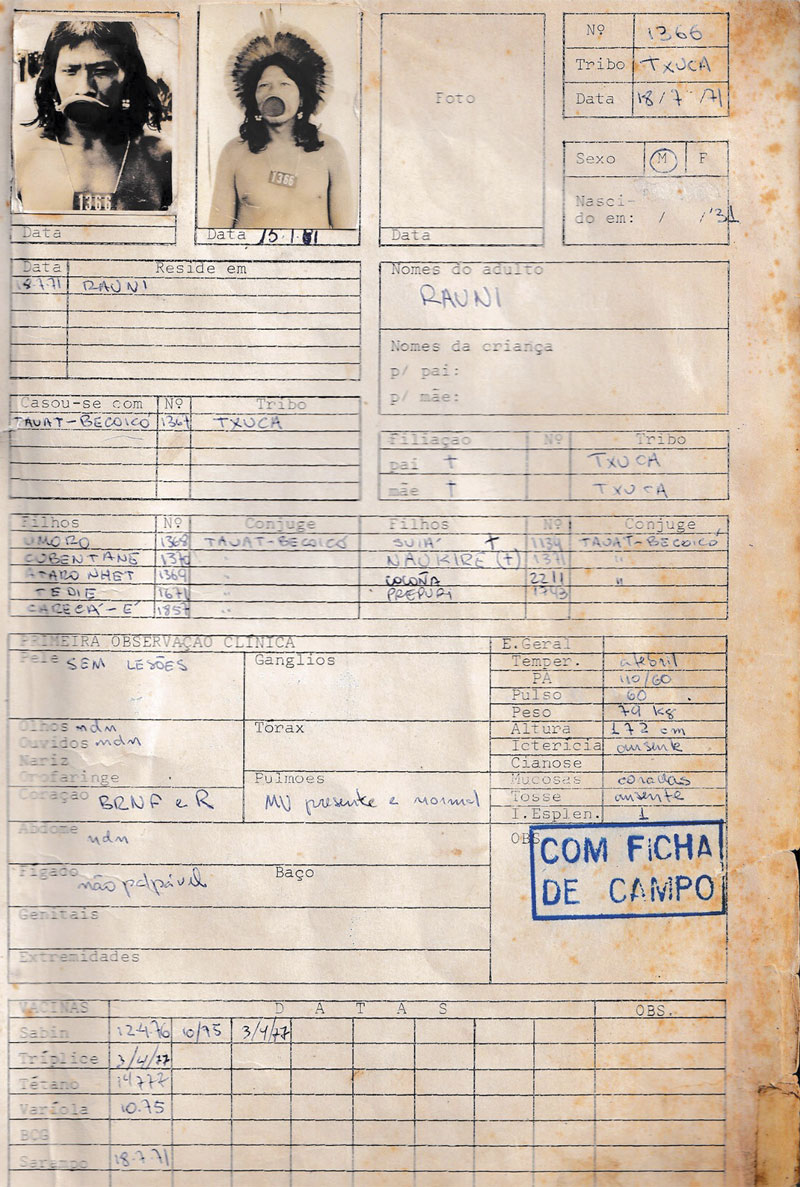 1366
1366
Data
Data 15.1.81
Foto
Data
Nº 1366
Tribo TXUCA
Data 18/7/71
Sexo M F
Nasci-
do em: / /'31
Data Reside em
18.7.71 RAUNI
Nomes do adulto
RAUNI
Nomes da criança
p/ pai:
p/ mãe:
Casou-se com Nº Tribo
TAUAT-BECOICÓ 1367 TXUCA
Filiação Nº Tribo
pai † TXUCA
mãe † TXUCA
Filhos Nº Conjuge Filhos Nº Conjuge
UMORO 1368 TAUAT-BECOICÓ SUIÁ † 1134 TAUAT-BECOICÓ
CUBENTANE 1370 " NAUKIRE (†) 1371 "
ATARO NHET 1369 " COLOÑA 2211 "
TEDIE 1671 " PREPURI 1743
CARECÁ-E 1857 "
PRIMEIRA OBSERVAÇÃO CLÍNICA
Pele SEM LESÕES
Ganglios
Olhos ndn
Ouvidos ndn
Nariz
Orofaringe
Tórax
Coração BRNF e R
Pulmoes
MV presente e normal
Abdome
ndn
Fígado
não palpável
Baço
Genitais
Extremidades
E.Geral
Temper. afebril
PA 110/60
Pulso 60
Peso 79 kg
Altura 172 cm
Icterícia ausente
Cianose
Mucosas coradas
Tosse ausente
I.Esplen. 1
OBS
COM FICHA
DE CAMPO
VACINAS D A T A S OBS.
Sabin 12.4.76 10/75 3/4/77
Tríplice 3/4/77
Tétano
Varíola 10.75
BCG
Sarampo 18.7.71